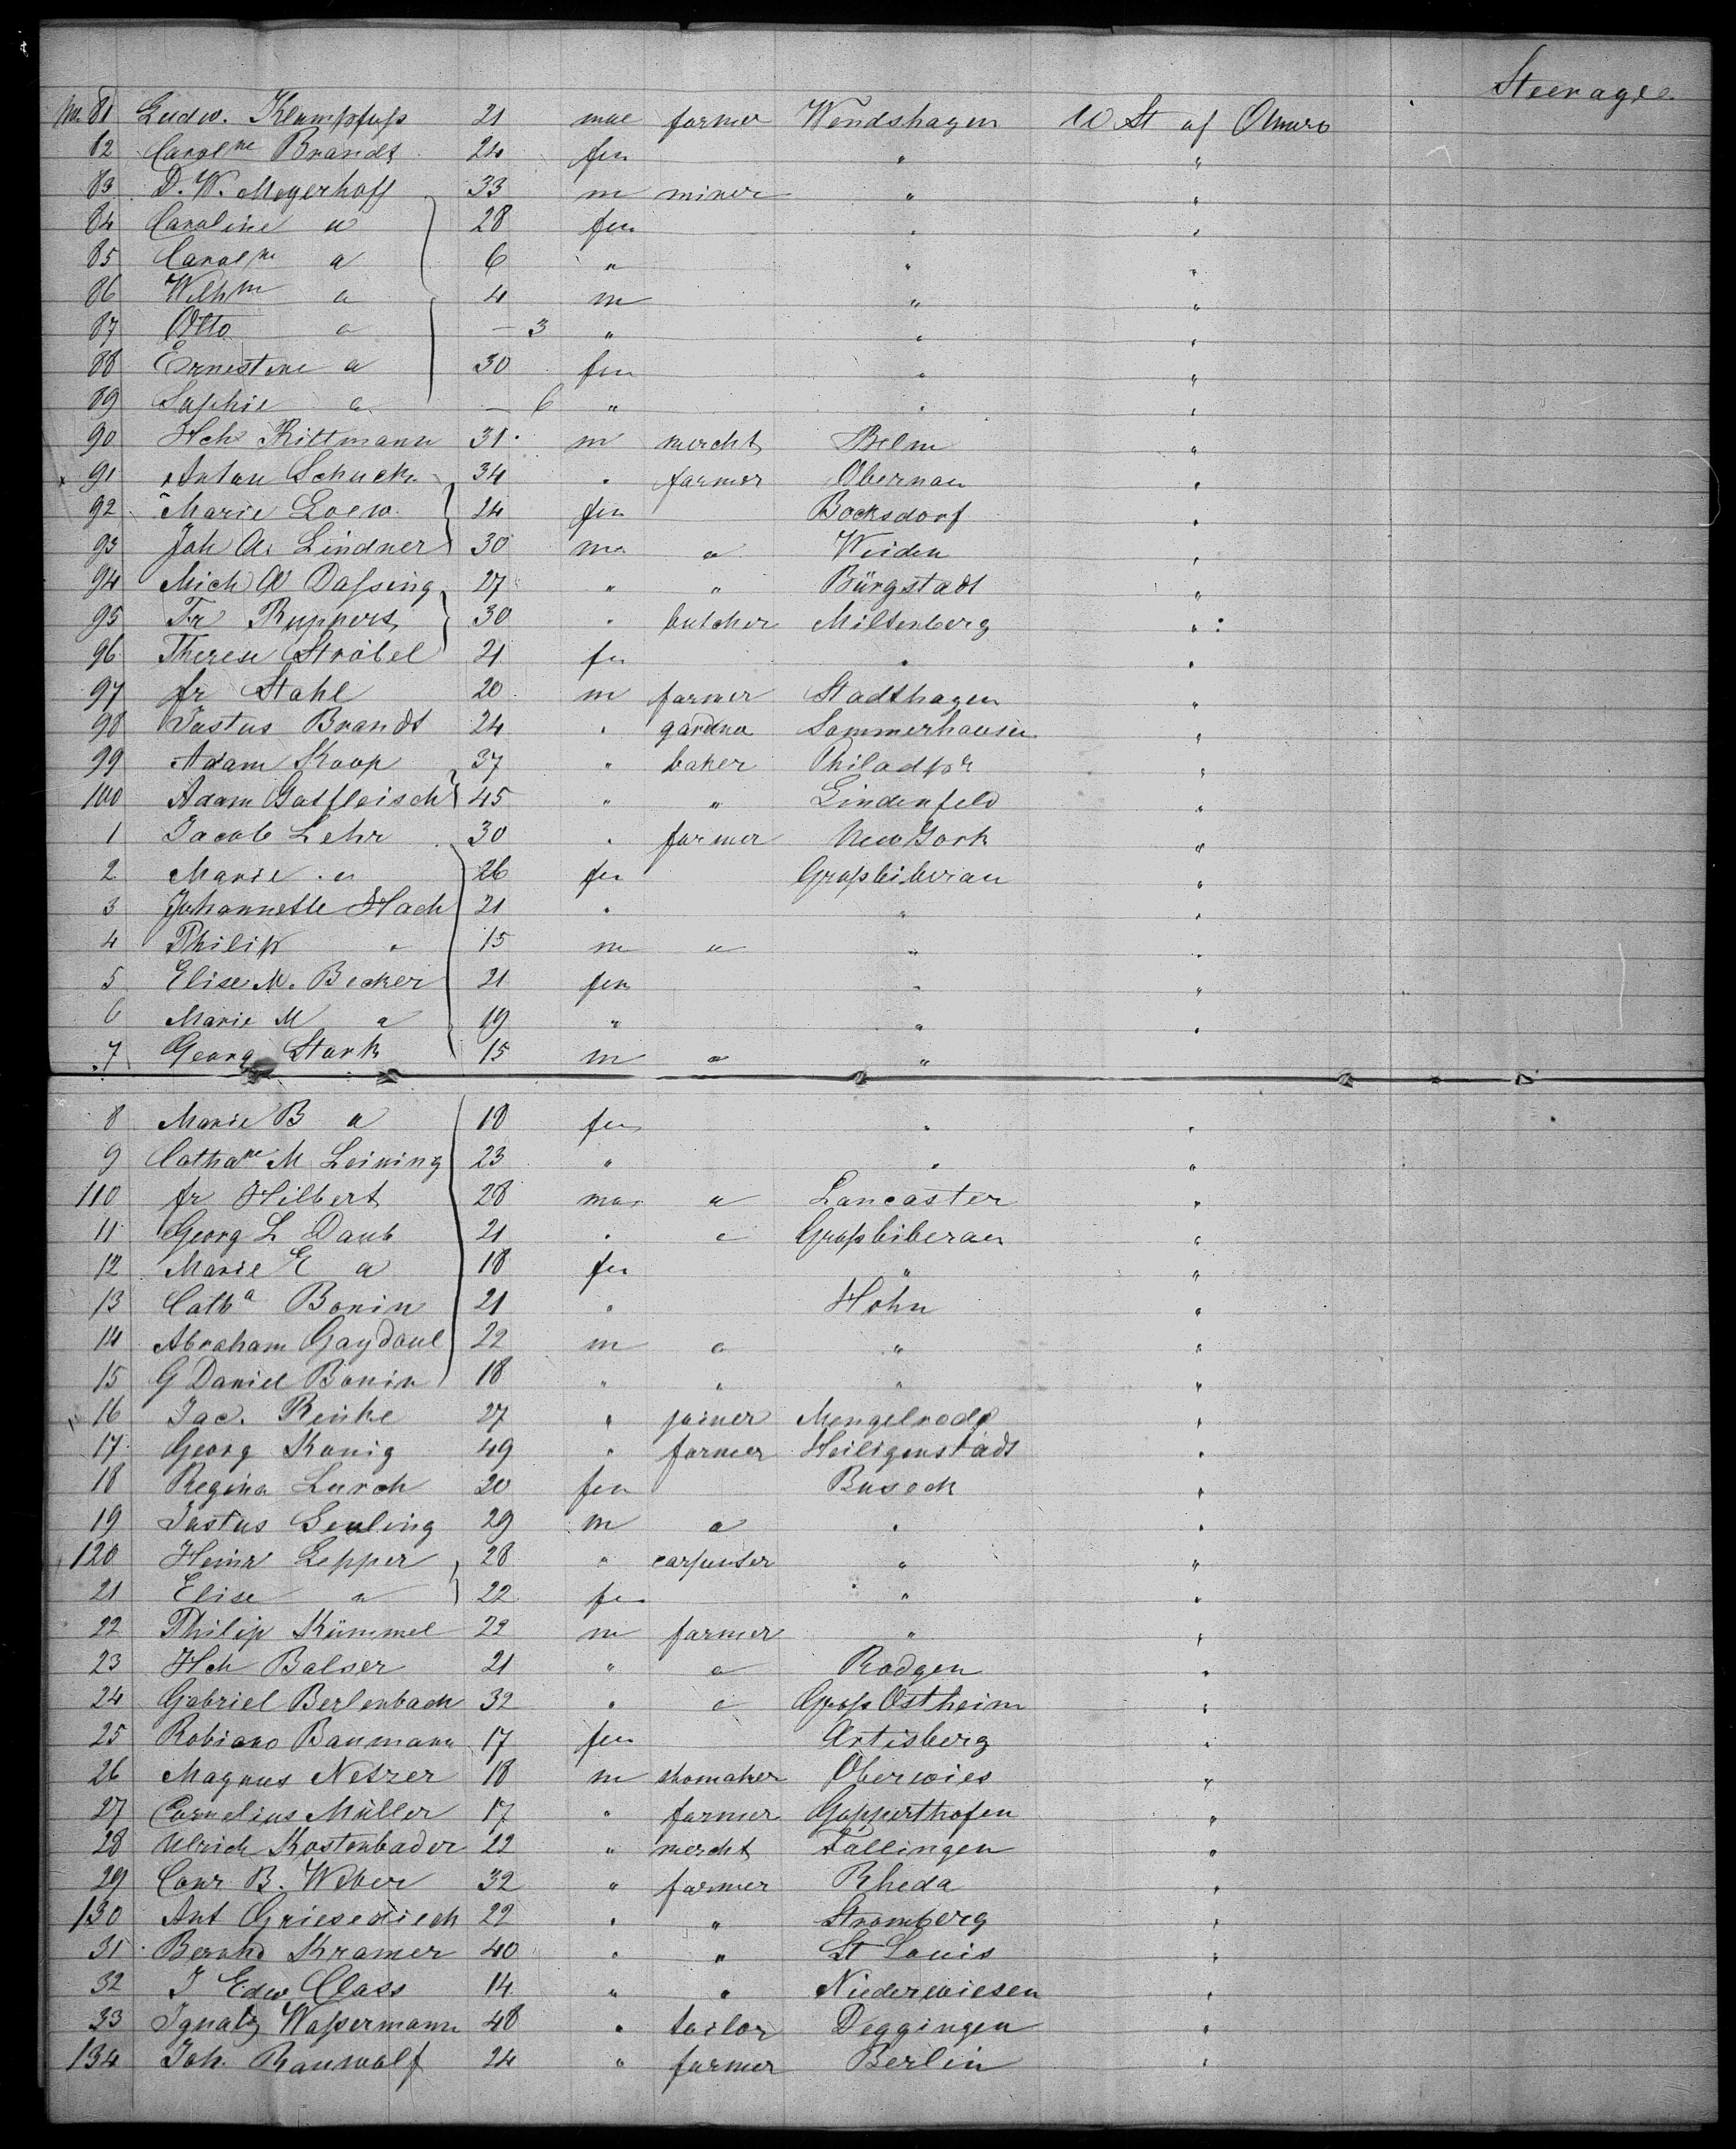 Steerage
No. 81 Ludw. Klampfuß 21 mae farmer Wendshagen U St of Amerc
82 Carolne Brandt 24 fem " "
83 D. W. Meyerhoff 33 m miner " "
84 Caroline " 28 fem " "
85 Carolne " 6 " " "
86 Wilhm " 4 m " "
87 Otto " — 3 " " "
88 Ernestine " 30 fem " "
89 Sophie " — 6 " " "
90 Hch Rittmann 31 m mercht Belm "
91 Anton Schuck 34 " farmer Obernau "
92 Marie Loew 24 fem Bocksdorf "
93 Joh A. Lindner 30 ma " Weiden "
94 Mich A Daßing 27 " " Bürgstadt "
95 Fr Ruppert 30 " butcher Miltenberg "
96 Therese Ströbel 21 fe " "
97 Fr Stahl 20 m farmer Stadthagen "
98 Justus Brandt 24 " gardner Sommerhausen "
99 Adam Koop 37 " baker Philadpa "
100 Adam Gotfleisch 45 " " Lindenfeld "
1 Jacob Lehr 30 " farmer New York "
2 Marie " 26 fe Großbiberau "
3 Johannette Hach 21 " " "
4 Philip " 15 m " " "
5 Elise M. Becker 21 fem " "
6 Marie M " 19 " " "
7 Georg Stark 15 m " "
8 Marie B " 18 fem " "
9 Cathane M Leining 23 " " "
110 Fr Hilbert 28 ma " Lancaster "
11 Georg L Daub 21 " " Großbiberau "
12 Marie E " 18 fe " "
13 Catha Bonin 21 " Hohn "
14 Abraham Gaydoul 22 m " " "
15 G Daniel Bonin 18 " " " "
16 Jac. Reinke 27 " joiner Mengelrode "
17 Georg Konig 49 " farmer Heiligenstadt "
18 Regina Lurch 20 fem Buseck "
19 Justus Seuling 29 m " " "
120 Heinr Lepper 28 " carpenter " "
21 Elise " 22 fe " "
22 Philip Kümmel 22 m farmer " "
23 Hch Balser 21 " " Rodgen "
24 Gabriel Berlenbach 32 " " Groß Ostheim "
25 Robiano Baumann 17 fem Artisberg "
26 Magnus Netzer 18 m shomaker Oberwies "
27 Cornelius Müller 17 " farmer Gopperthofen "
28 Ulrich Kostenbader 22 " mercht Tallingen "
29 Conr B. Weber 32 " farmer Rheda "
130 Ant Griesediech 22 " " Stromberg "
31 Bernhd Kramer 40 " " St Louis "
32 J Edw Class 14 " " Niederwiesen "
33 Ignatz Waßermann 48 " tailor Deggingen "
134 Joh. Rauwolf 24 " farmer Berlin "